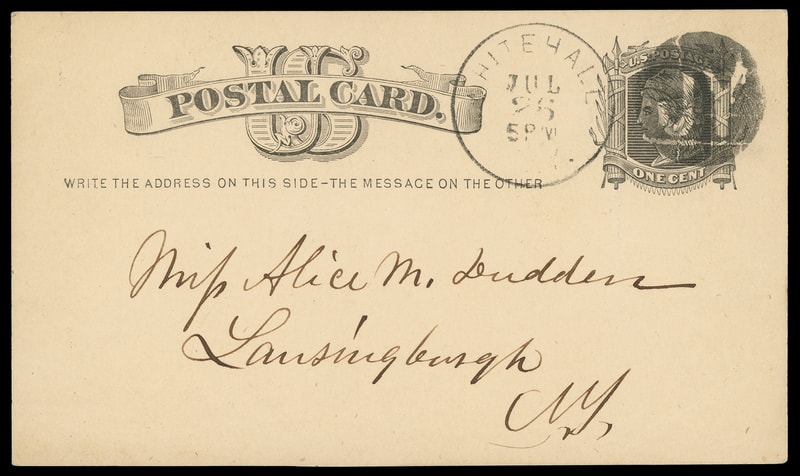 US
POSTAL CARD.
WRITE THE ADDRESS ON THIS SIDE-THE MESSAGE ON THE OTHER
WHITEHALL
JUL
25
5PM
U.S. POSTAGE
ONE CENT
Miss Alice M. Dudden
Lansingburgh
N.Y.